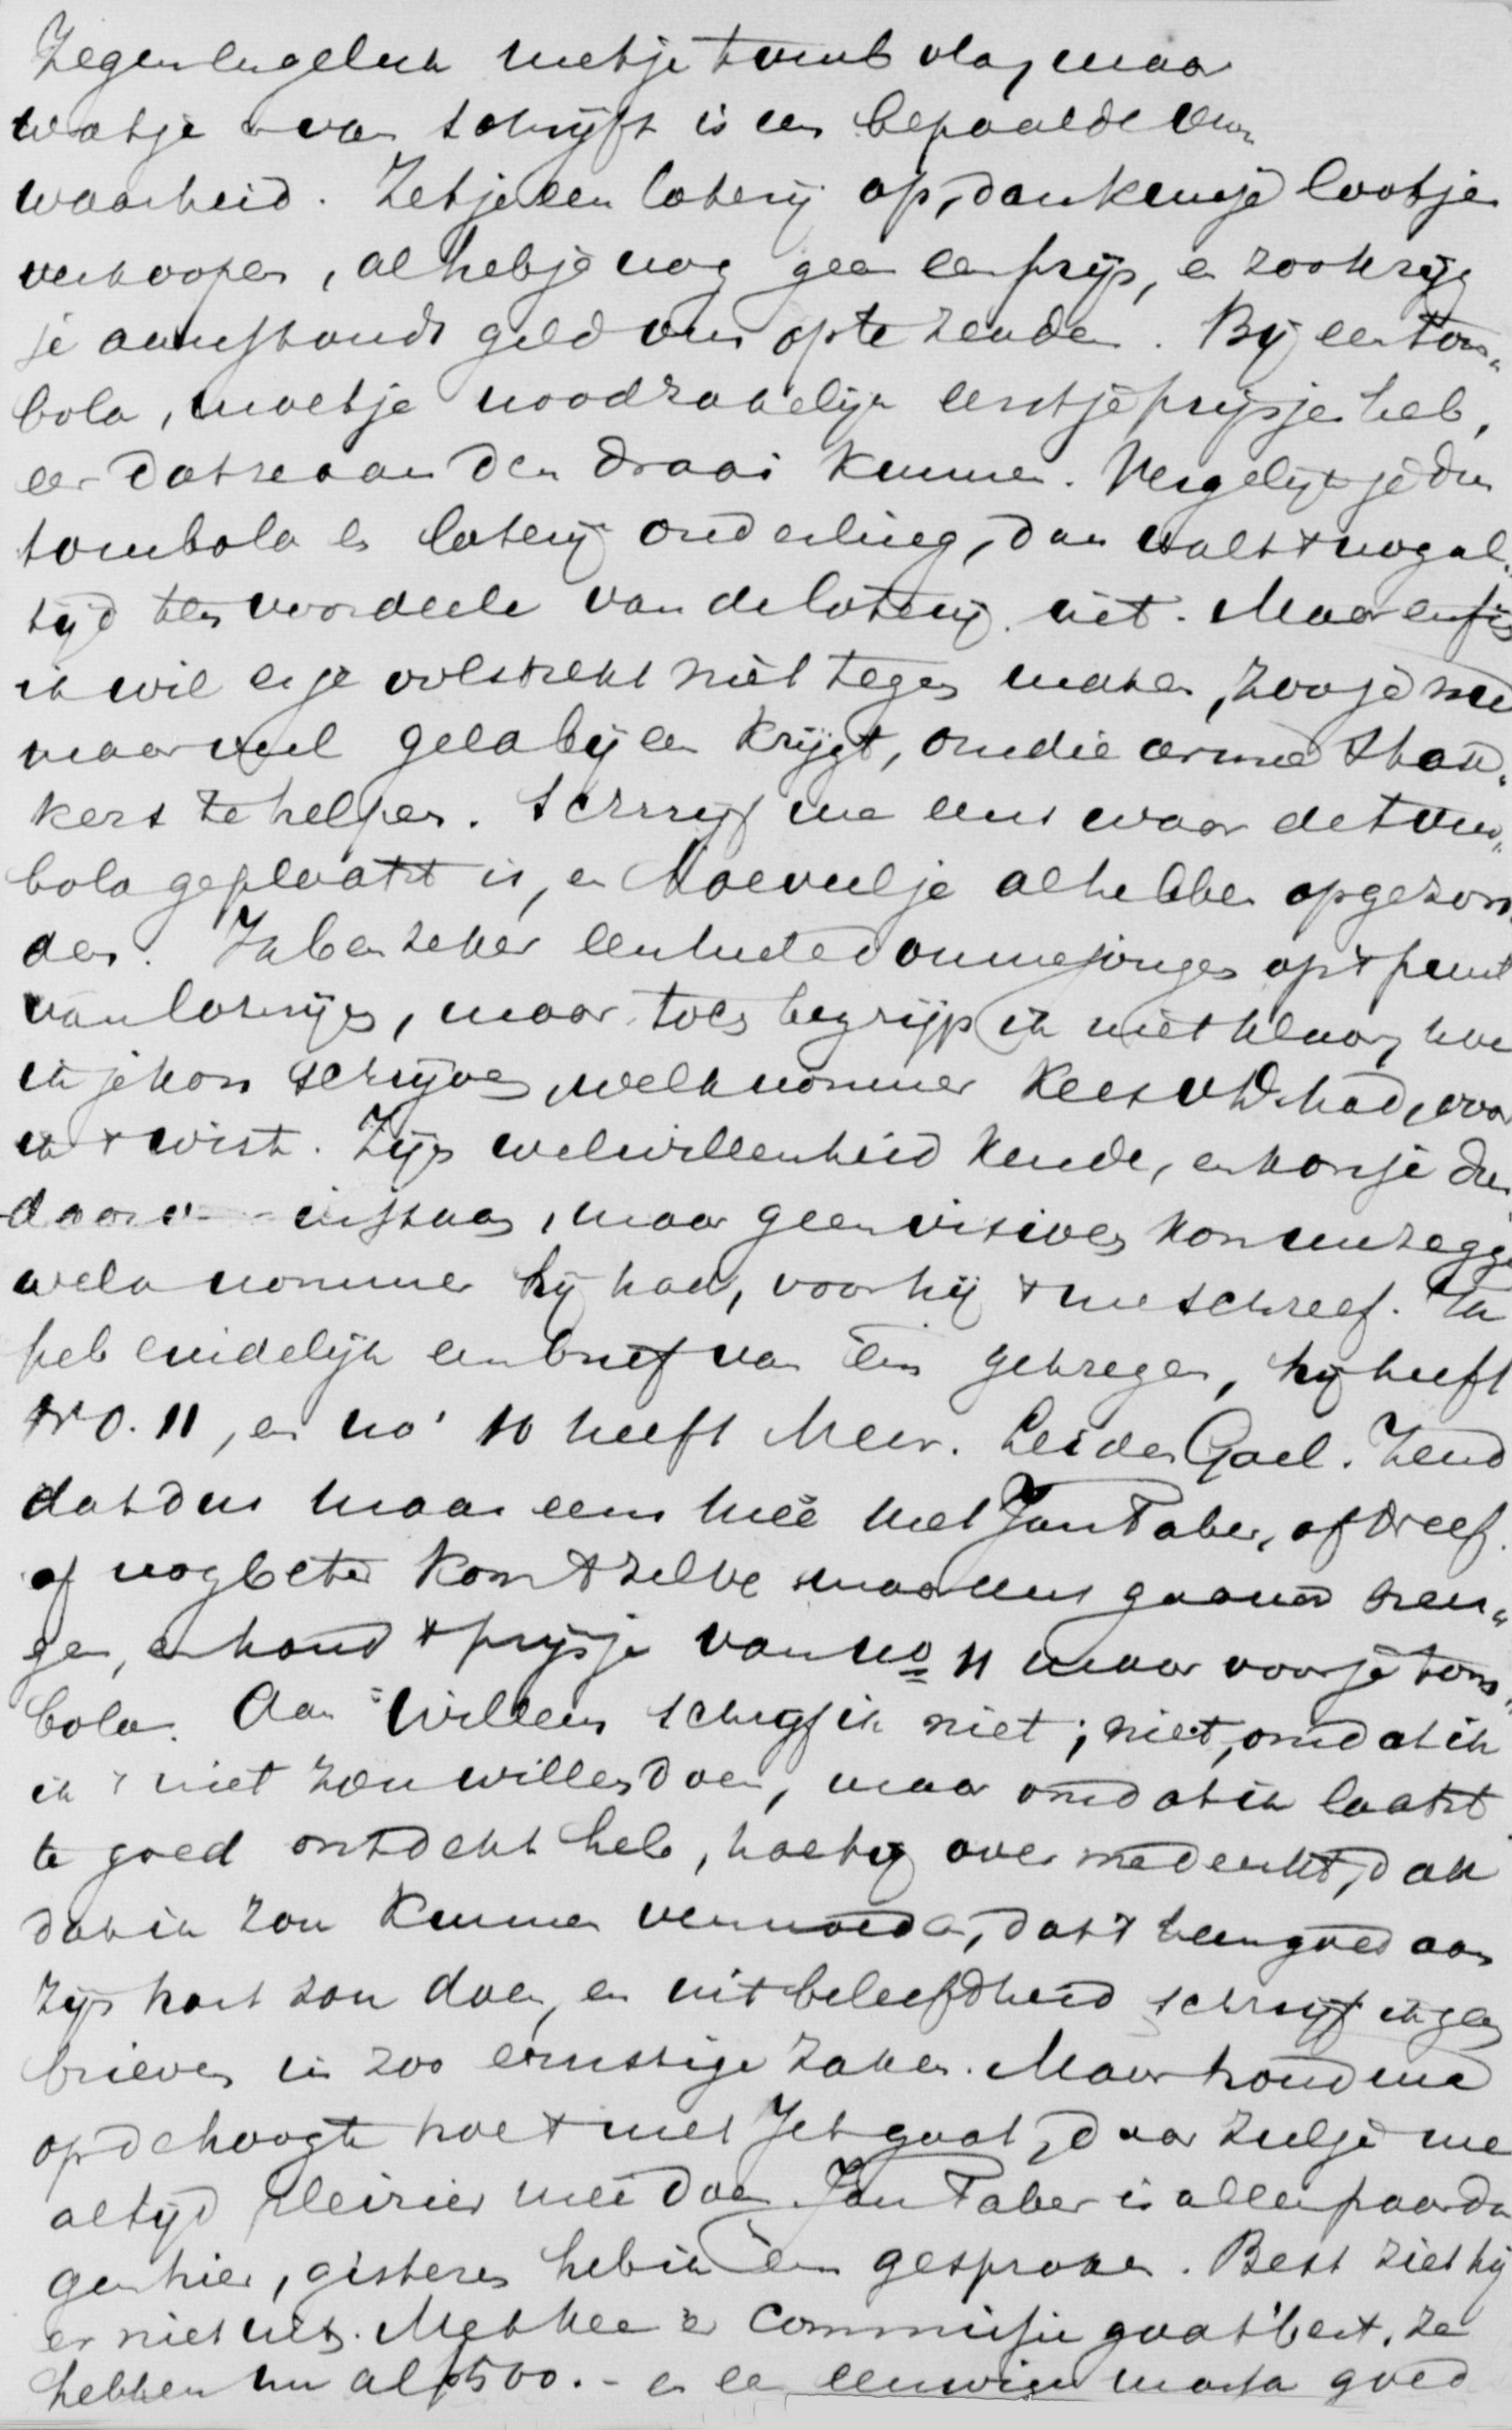 met je tombola, maar
wat je er van schrijft is een bepaalde on
waarheid. Zet je een loterij op, dan kun je lootjes
verkoopen, al heb je nog geen een prijs, en zoo krijg
je aanstonds geld om op te zenden. Bij een tom„
bola, moet je noodzakelijk eerst je prijsjes heb,
eer dat ze aan den draai kunnen. Vergelijk je dus
tombola en loterij onderling, dan valt 't nog al„
tijd ten voordeele van de loterij uit. Maar enfin
ik wil er je volstrekt niet tegen maken, zoo je me
maar veel geld bij een krijgt, om die arme stak„
kers te helpen. Schrijf me eens waar de tom„
bola geplaatst is, en hoeveel je al hebben opgezon
den. Ik ben zeker een domme jongen op 't punt
van loterijen, maar toch begrijp ik niet klaar, hoe
ik je kon schrijven, welk nommer Kees v W had, voor
ik 't wist. Zijn welwillendheid kende, en kon je dus
daarv instaan, maar geen kon me zeggen
welk nommer hij had, voor hij 't me schreef. Ik
heb eindelijk een brief van 'em gekregen, hij heeft
No. 11, en no 10 heeft Mevr. Leider Gael. Zend
dat dus maar eens meê met Jan Faber, of Dreef.
of nog beter kom 't zelve maar eens gaauw bren„
gen, en houd 't prijsje van no 11 maar voor je tom„
bola. Aan Willem schrijf ik niet; niet, omdat ik
ik 't niet zou willen doen, maar omdat ik laatst
te goed ontdekt heb, hoe hij over me denkt, dan
dat ik zou kunnen vermoeden, dat 't hem goed aan
zijn hart zou doen, en uit beleefdheid schrijf ik geen
brieven in zoo ernstige zaken. Maar houd me
op de hoogte hoe 't met Jet gaat, daar zul je me
altijd pleizier meê doen. Jan Faber is alle paar da
gen hier, gisteren heb ik 'em gesproken. Best ziet hij
er niet uit. Met de commissie gaat 't best. ze
hebben nu al f 500.- en een massa goed